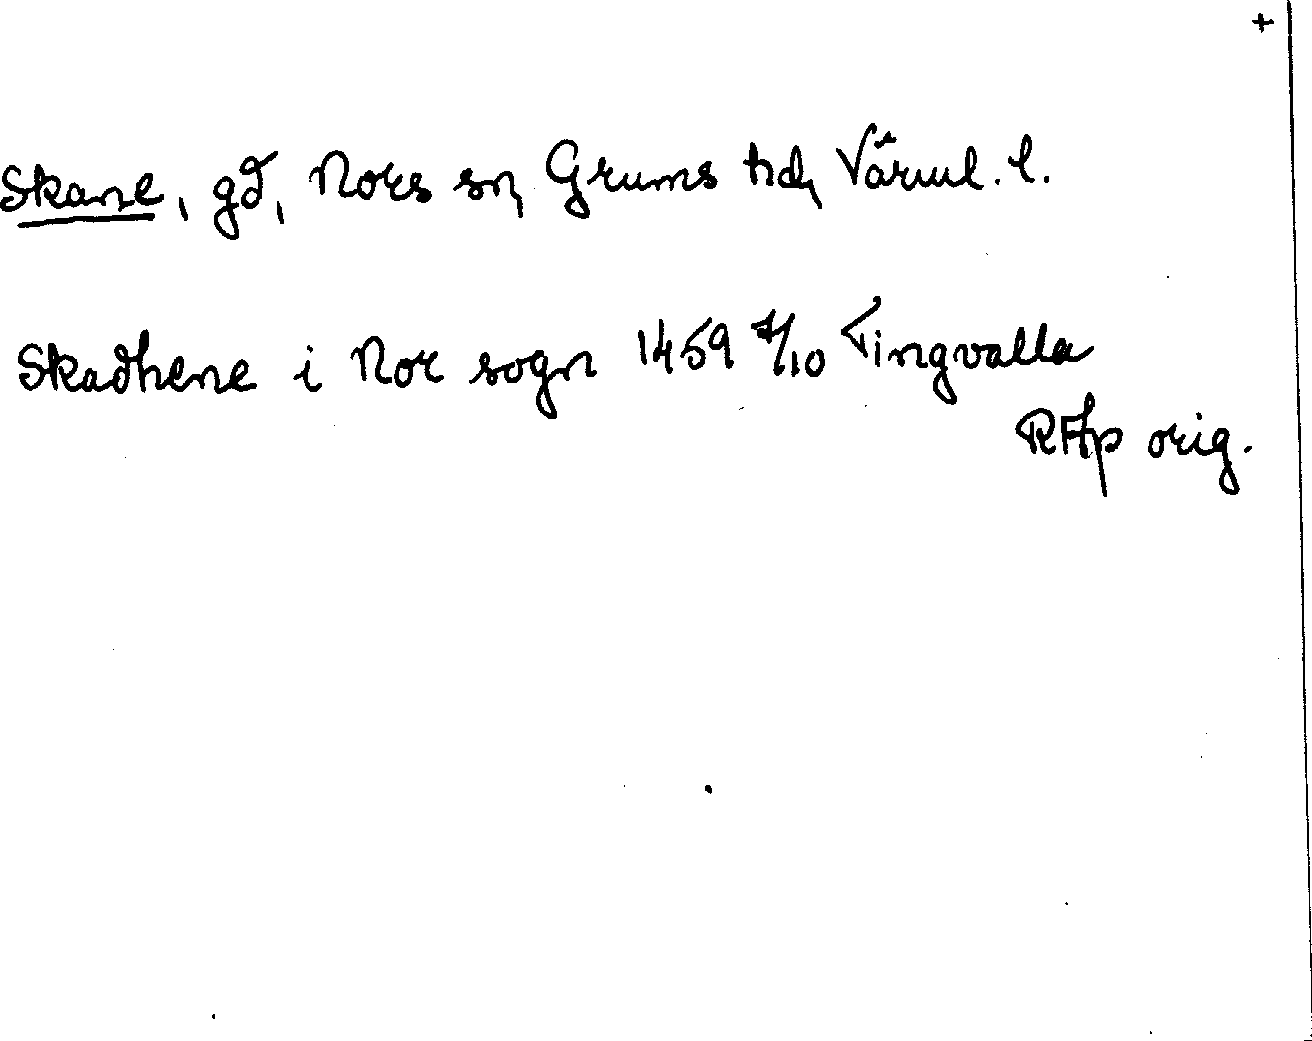 +
Skane, gd, Nors sn, Grums hd, Värml. l.
Skadhene i Nor sogn 1459 7/10 Tingvalla
RAp orig.